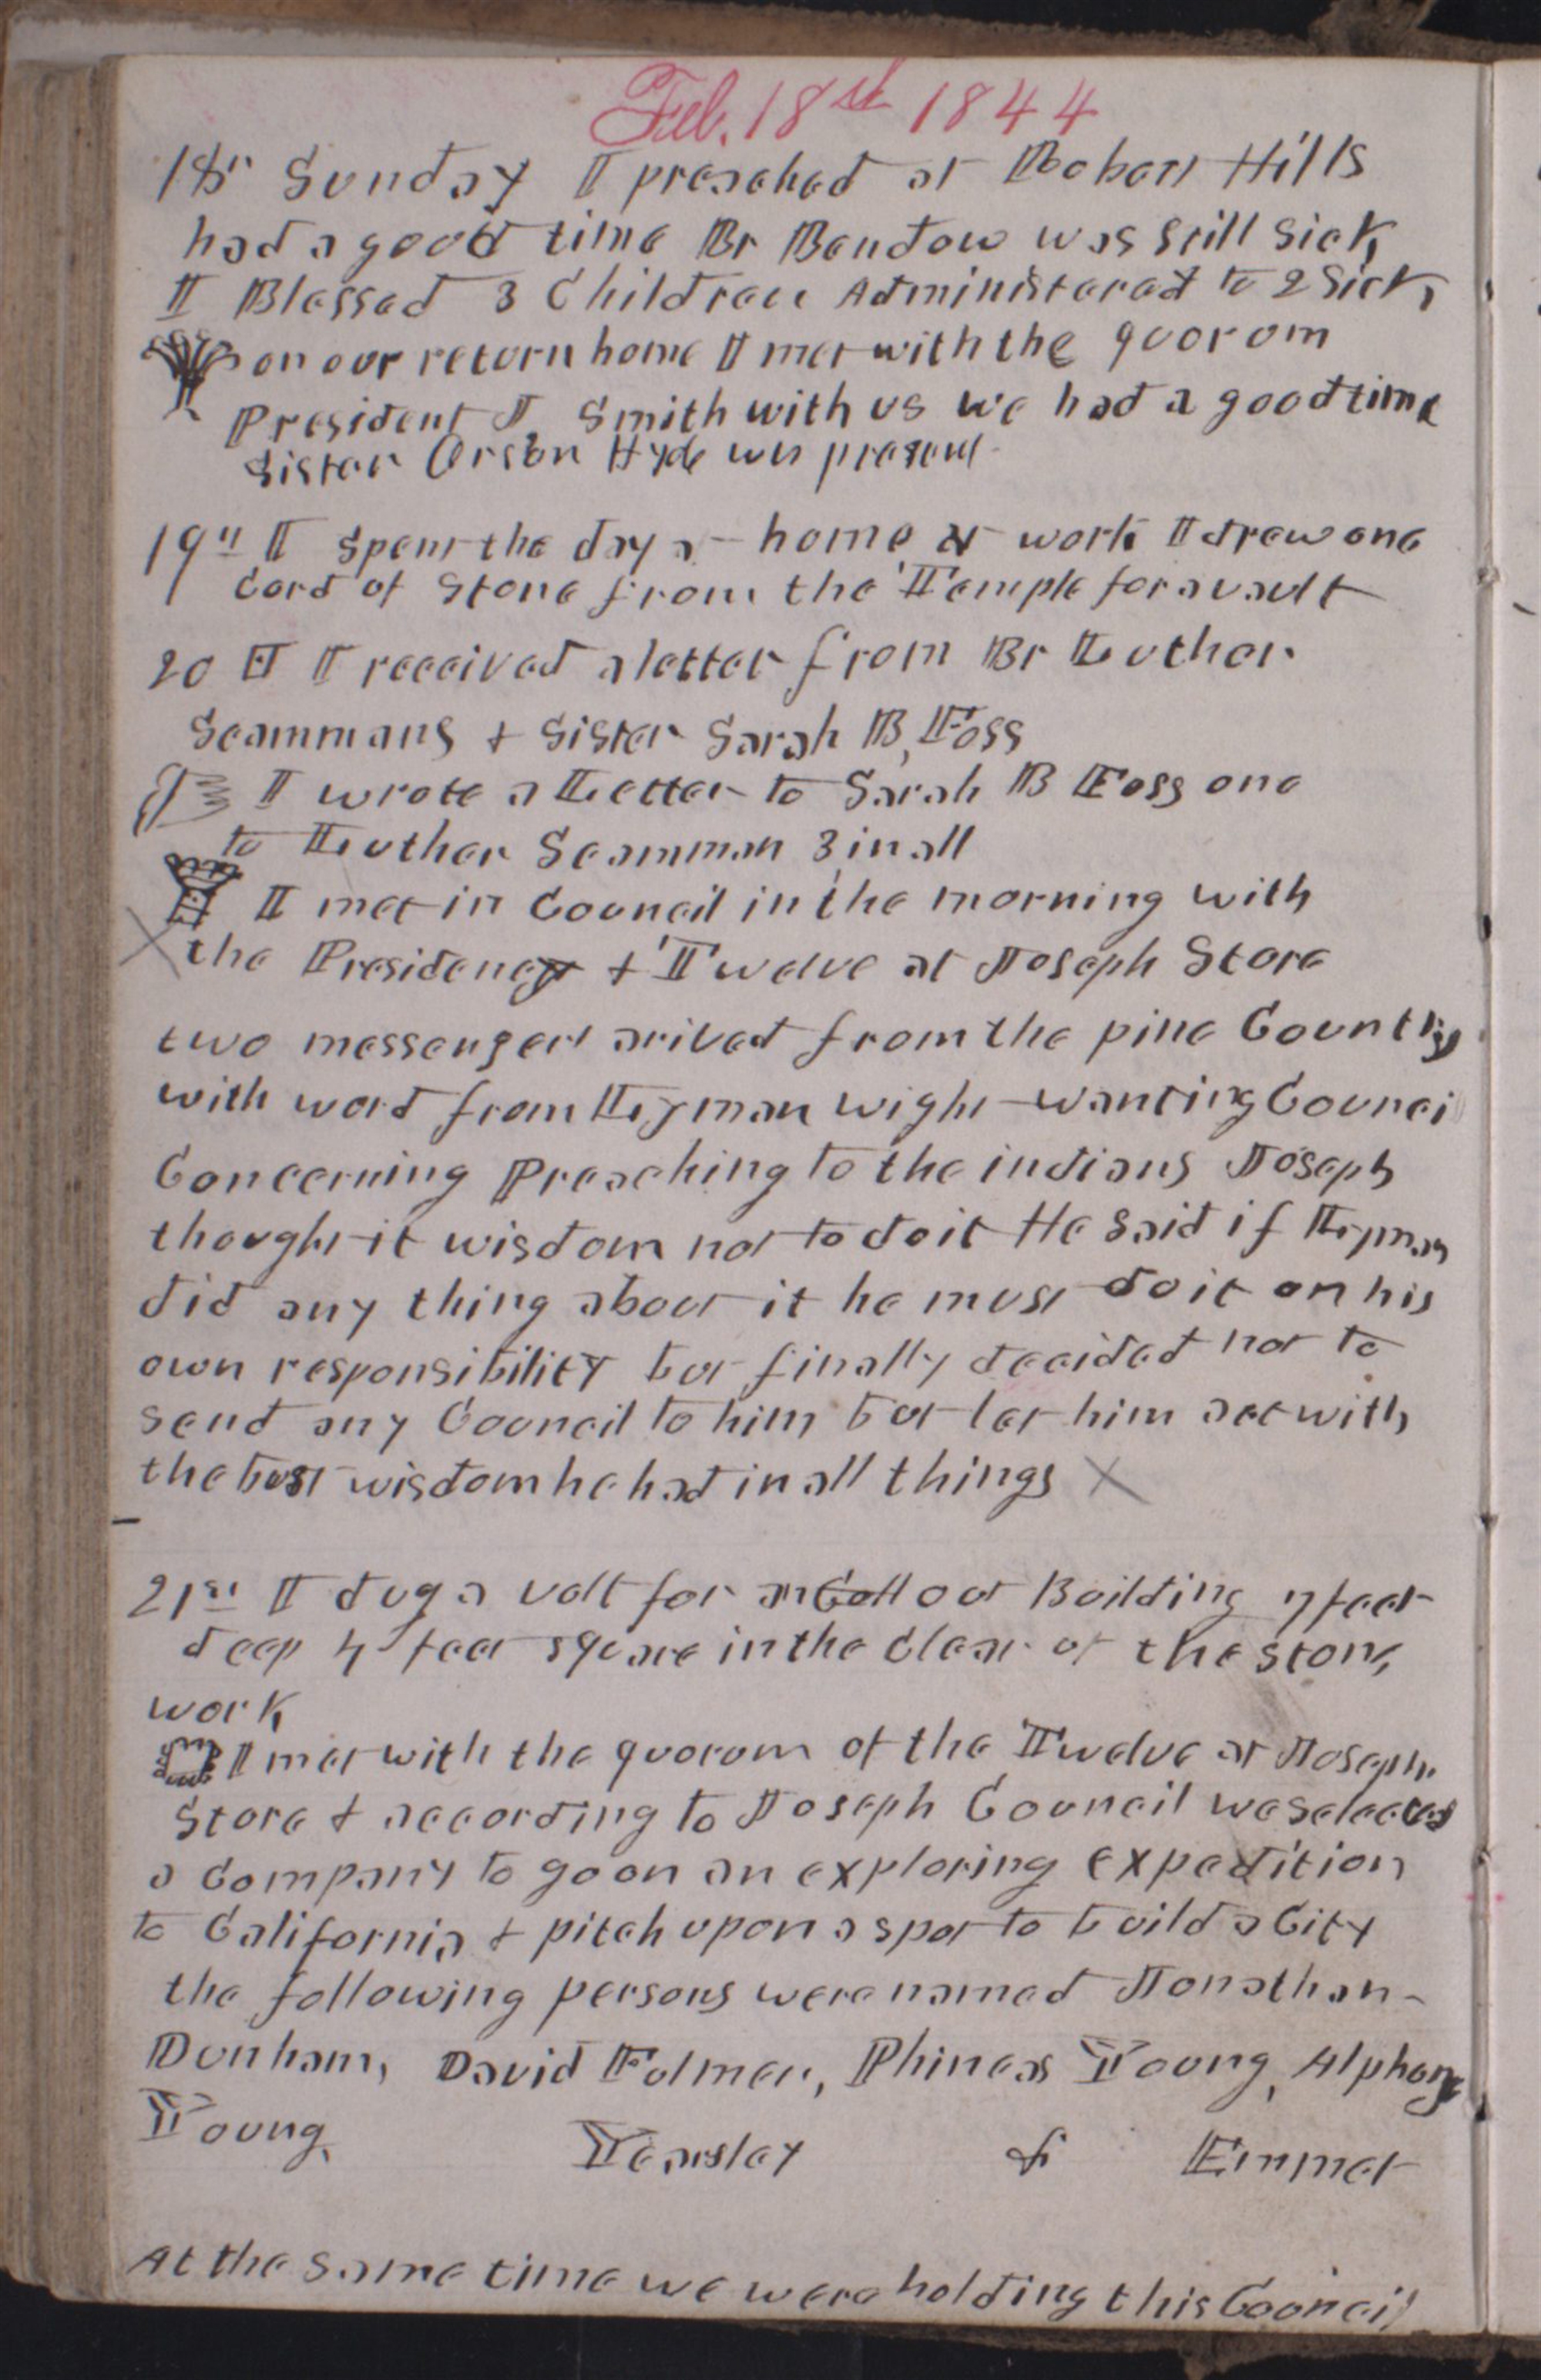 Feb. 18th 1844
18th Sunday I preached at Robert Hills
had a good time Br Bendow was still sick
I Blessed 3 Children Administered to 2 Sick,
on our return home I met with the quorom
President J. Smith with us we had a good time
Sister Orson Hyde was present
19th I spent the day at home at work I drew one
Cord of Stone from the Temple for a vault
20 I received a letter from Br Luther
Scammans & Sister Sarah B, Foss
I wrote a Letter to Sarah B Foss one
to Luther Scamman 3 in all
I met in Council in the morning with
the Presidency & Twelve at Joseph Store
two messengers arived from the pine Country
with word from Lyman wight wanting Councei
Concerning Preaching to the indians Joseph
thought it wisdom not to do it He said if Lyman
did any thing about it he must do it on his
own responsibility but finally decided not to
send any Council to him but let him act with
the best wisdom he had in all things X
21st I dug a volt for an out Building 7 feet
deep 4 feet square in the clear of the stone,
work
I met with the quorum of the Twelve at Joseph
Store & according to Joseph Council we selected
a Company to go on an exploring expedition
to California & pitch upon a spot to build a City
the following persons were named Jonathan
Dunham, David Fulmer, Phineas Young, Alphonzo
Young, Yearsley & Emmet
At the same time we were holding this Council